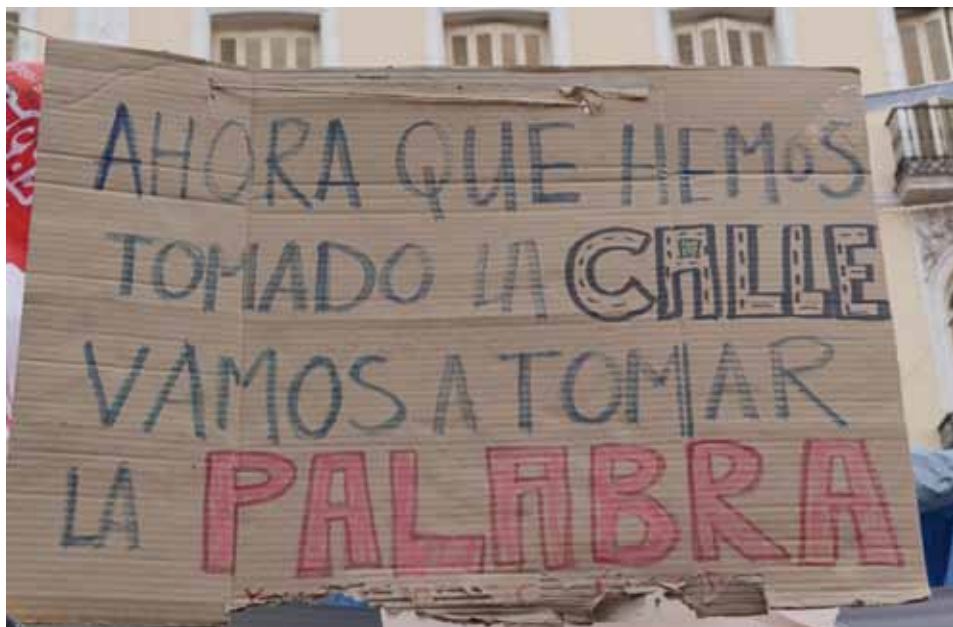 AHORA QUE HEMOS
TOMADO LA CALLE
VAMOS A TOMAR
LA PALABRA